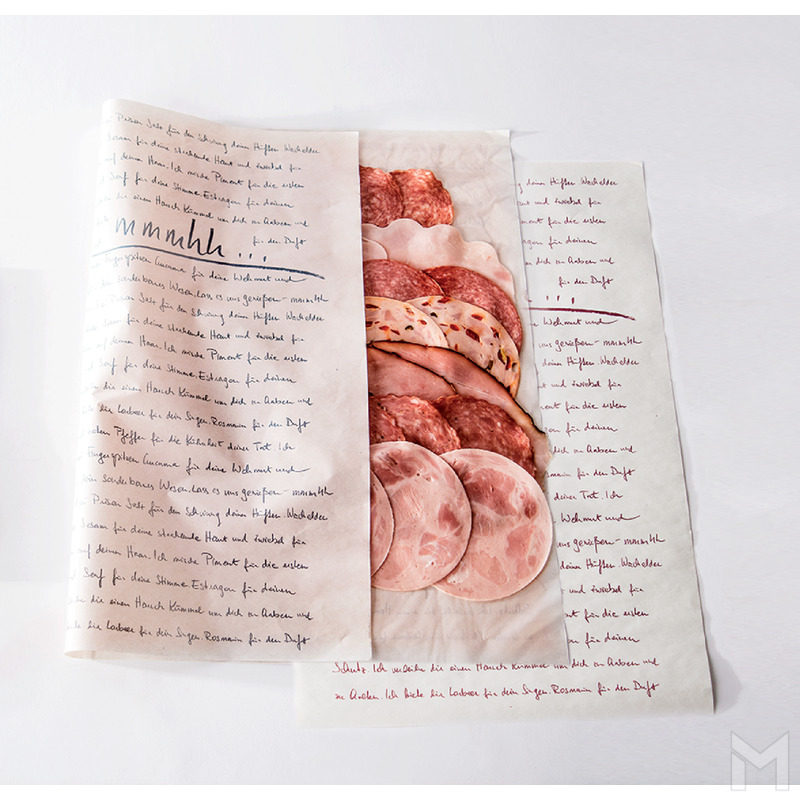 Prisen Salz für den Schwung deiner Hüften. Wacholder
Sesam für deine stechende Haut und Zwiebel für
auf deinem Haar. Ich mische Piment für die ersten
Senf für deine Stimme. Estragon für deinen
die einen Hauch Kümmel um dich zu Laben und
mmmhh...
für den Duft
Fingerspitzen Curcuma für deine Wehmut und
ein sonderbares Wesen. Lass es uns genießen - mmmhh
Prisen Salz für den Schwung deiner Hüften. Wacholder
Sesam für deine stechende Haut und Zwiebel für
auf deinem Haar. Ich mische Piment für die ersten
Senf für deine Stimme. Estragon für deinen
die einen Hauch Kümmel um dich zu Laben und
hie Lorbeer für dein Singen. Rosmarin für den Duft
Pfeffer für die Kühnheit deiner Tat. Ich
Fingerspitzen Curcuma für deine Wehmut und
ein sonderbares Wesen. Lass es uns genießen - mmmhh
Prisen Salz für den Schwung deiner Hüften. Wacholder
Sesam für deine stechende Haut und Zwiebel für
auf deinem Haar. Ich mische Piment für die ersten
Senf für deine Stimme. Estragon für deinen
die einen Hauch Kümmel um dich zu Laben und
hie Lorbeer für dein Singen. Rosmarin für den Duft
deiner Hüften. Wacholder
und Zwiebel für
für die ersten
für deinen
um dich zu Laben und
für den Duft
...
deine Wehmut und
uns genießen - mmmhh
deiner Hüften. Wacholder
und Zwiebel für
für die ersten
für deinen
um dich zu Laben und
Rosmarin für den Duft
deiner Tat. Ich
deine Wehmut und
uns genießen - mmmhh
deiner Hüften. Wacholder
und Zwiebel für
für die ersten
für deinen
Schutz. Ich verleihe dir einen Hauch Kümmel um dich zu Laben und
zu Lorbeer für dein Singen. Rosmarin für den Duft
M